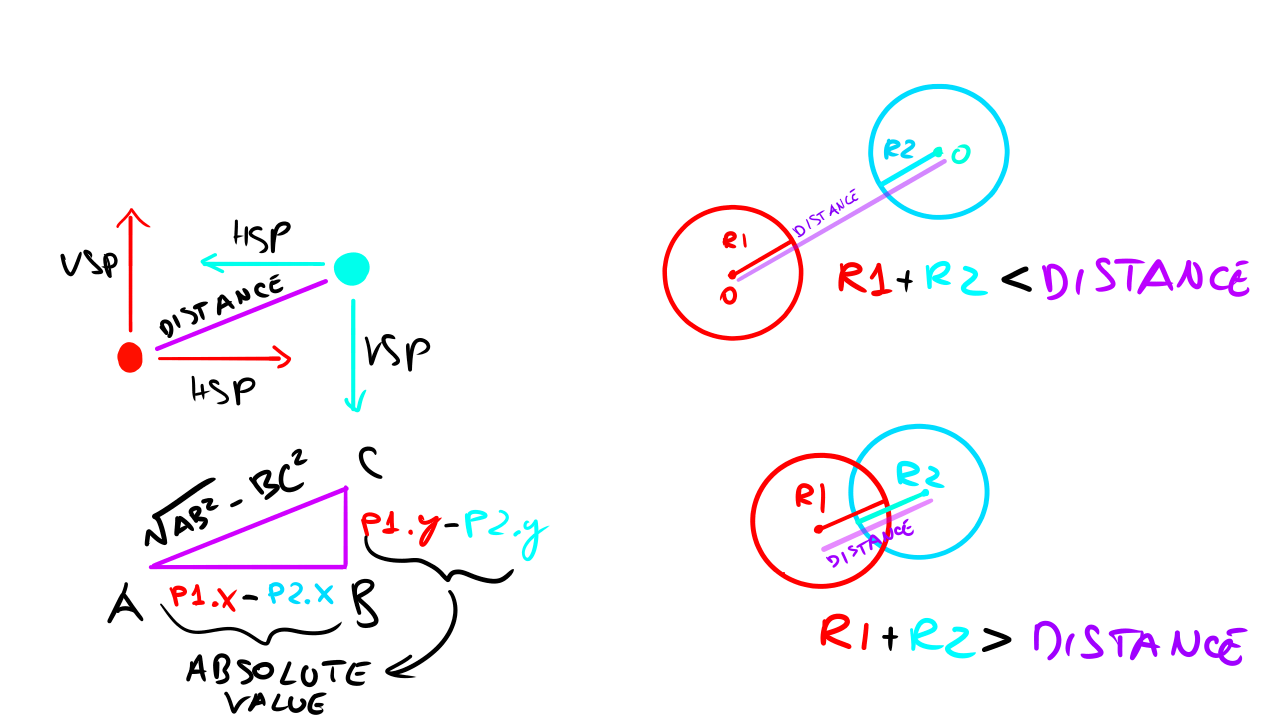 HSP
VSP
DISTANCE
VSP
HSP
C
√AB² - BC²
P1.y-P2.y
A
P1.x-P2.x
B
ABSOLUTE
VALUE
R2
O
DISTANCE
R1
O
R1+R2<DISTANCE
R2
R1
DISTANCE
R1+R2>DISTANCE